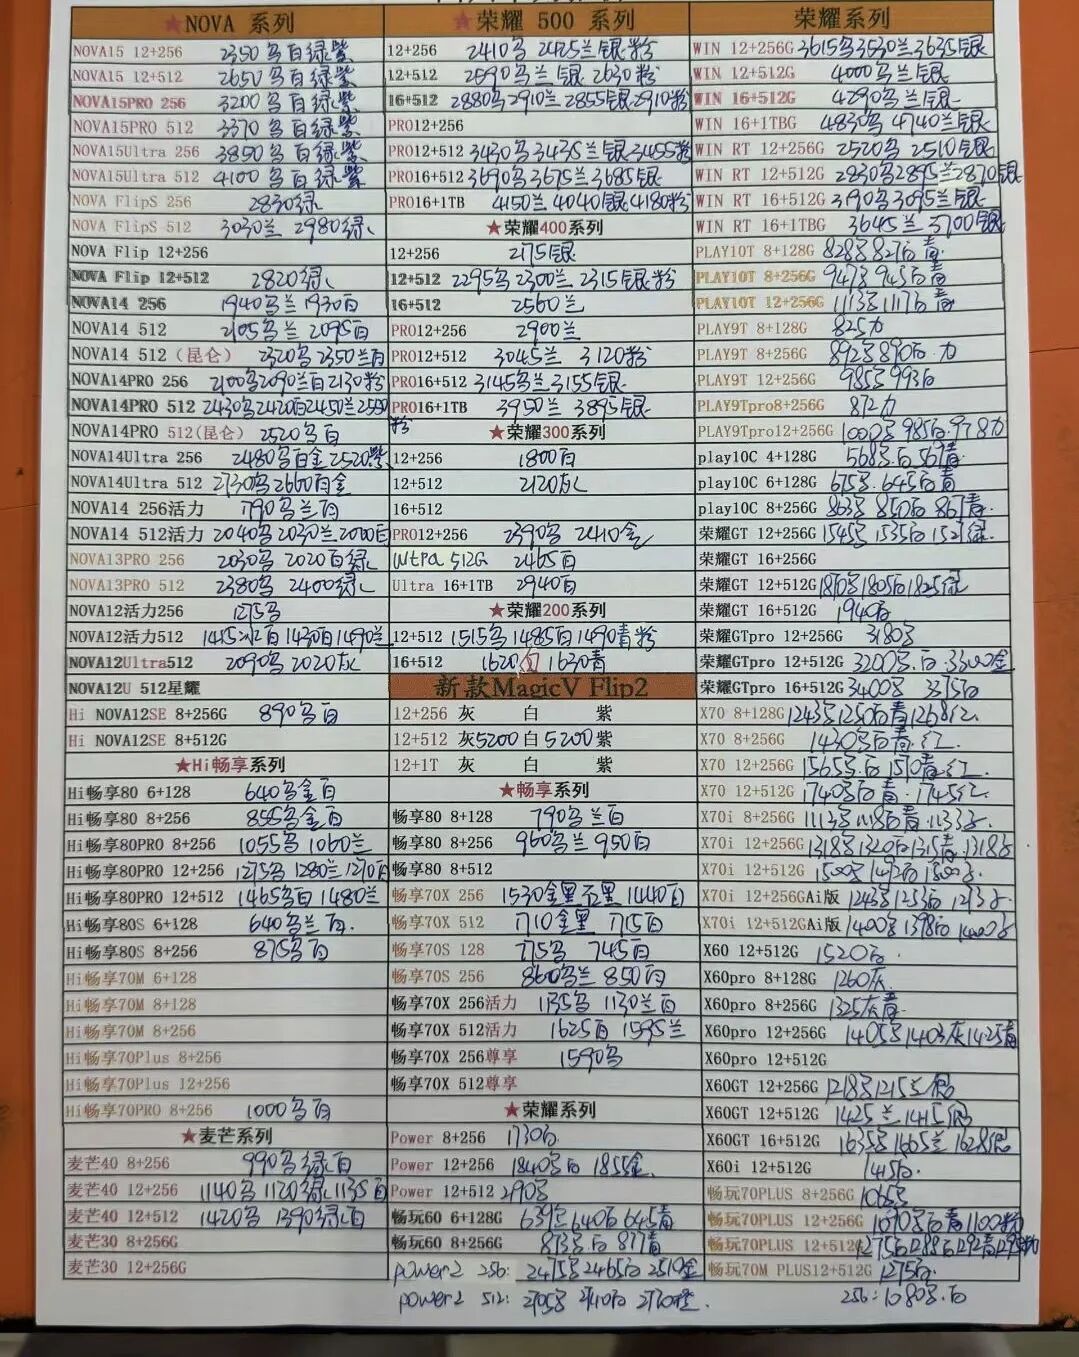 ★NOVA 系列
NOVA15 12+256 2350乌白绿紫
NOVA15 12+512 2650乌白绿紫
NOVA15PRO 256 3200乌白绿紫
NOVA15PRO 512 3370乌白绿紫
NOVA15Ultra 256 3850乌白绿紫
NOVA15Ultra 512 4100乌白绿紫
NOVA FlipS 256 2830绿
NOVA FlipS 512 3030兰 2980绿
NOVA Flip 12+256
NOVA Flip 12+512 2820绿
NOVA14 256 1940乌兰1930白
NOVA14 512 2105乌兰 2095白
NOVA14 512（昆仑） 2320乌2350兰白
NOVA14PRO 256 2100乌2090兰白2130粉
NOVA14PRO 512 2430乌2420白2450兰2550粉
NOVA14PRO 512(昆仑) 2520乌白
NOVA14Ultra 256 2480乌白金2520紫
NOVA14Ultra 512 2730乌2660白金
NOVA 14 256活力 1790乌兰白
NOVA 14 512活力 2040乌2030兰2000白
NOVA13PRO 256 2030乌 2020白绿
NOVA13PRO 512 2380乌 2400绿
NOVA12活力256 1275乌
NOVA12活力512 1415冰白1430白1490兰
NOVA12Ultra512 2090乌2020灰
NOVA12U 512星耀
Hi NOVA12SE 8+256G 890乌白
Hi NOVA12SE 8+512G
★Hi畅享系列
Hi畅享80 6+128 640乌金白
Hi畅享80 8+256 855乌金白
Hi畅享80PRO 8+256 1055乌 1060兰
Hi畅享80PRO 12+256 1275乌1280兰1270白
Hi畅享80PRO 12+512 1465乌白1480兰
Hi畅享80S 6+128 640乌兰白.
Hi畅享80S 8+256 875乌白
Hi畅享70M 6+128
Hi畅享70M 8+128
Hi畅享70M 8+256
Hi畅享70Plus 8+256
Hi畅享70Plus 12+256
Hi畅享70PRO 8+256 1000乌白
★麦芒系列
麦芒40 8+256 990乌绿白
麦芒40 12+256 1140乌1120绿1135白
麦芒40 12+512 1420乌1390绿白
麦芒30 8+256G
麦芒30 12+256G
★荣耀 500 系列
12+256 2410乌2425兰银粉
12+512 2590乌兰银2630粉
16+512 2880乌2910兰2855银2910粉
PRO12+256
PRO12+512 3430乌3435兰银3455粉
PRO16+512 3690乌3675兰3685银
PRO16+1TB 4150兰4040银4180粉
★荣耀400系列
12+256 2175银
12+512 2295乌2300兰2315银粉
16+512 2560兰
PRO12+256 2900兰
PRO12+512 3045兰 3120粉
PRO16+512 3145乌兰3155银
PRO16+1TB 3950兰3895银
★荣耀300系列
12+256 1800白
12+512 2120灰
16+512
PRO12+256 2390乌2410金
Ultra 512G 2465白
Ultra 16+1TB 2940白
★荣耀200系列
12+512 1515乌1485白1490青粉
16+512 1620白 1630青
新款MagicV Flip2
12+256 灰 白 紫
12+512 灰5200白5200紫
12+1T 灰 白 紫
★畅享系列
畅享80 8+128 790乌兰白
畅享80 8+256 960乌兰950白
畅享80 8+512
畅享70X 256 1530金黑 1440白
畅享70X 512 1710金黑 1715白
畅享70S 128 775乌 745白
畅享70S 256 860乌兰 850白
畅享70X 256活力 1135乌 1130兰白
畅享70X 512活力 1625白1595兰
畅享70X 256尊享 1590乌
畅享70X 512尊享
★荣耀系列
Power 8+256 1730白
Power 12+256 1840黑白1855金
Power 12+512 2190黑
畅玩60 6+128G 639黑640白645青
畅玩60 8+256G 873黑白 877青
power2 256: 2475黑2465白2510金
power2 512: 2705黑2710白2760橙.
荣耀系列
WIN 12+256G 3615乌3530兰3635银
WIN 12+512G 4000乌兰银
WIN 16+512G 4290乌兰银
WIN 16+1TBG 4830乌4740兰银
WIN RT 12+256G 2520乌2510银
WIN RT 12+512G 2830乌2895兰2870银
WIN RT 16+512G 3190乌3095兰银
WIN RT 16+1TBG 3645兰3700银
PLAY10T 8+128G 828黑827白青
PLAY10T 8+256G 947黑945白青
PLAY10T 12+256G 1113黑1117白青
PLAY9T 8+128G 825力
PLAY9T 8+256G 892黑890白.力
PLAY9T 12+256G 985黑993白
PLAY9Tpro8+256G 872力
PLAY9Tpro12+256G 1000黑985白.978力
play10C 4+128G 568黑白567青
play10C 6+128G 675黑.645白青
play10C 8+256G 863黑850白867青
荣耀GT 12+256G 1545黑1535白1521绿
荣耀GT 16+256G
荣耀GT 12+512G 1810黑1805白1825绿
荣耀GT 16+512G 1940白
荣耀GTpro 12+256G 3180黑
荣耀GTpro 12+512G 3200黑.白.3300金
荣耀GTpro 16+512G 3400黑 3375白
X70 8+128G 1243黑1250白青1268红.
X70 8+256G 1430黑白青.红.
X70 12+256G 1565黑.白1570青.红.
X70 12+512G 1740黑白青.1745红.
X70i 8+256G 1113黑1118白青.1133
X70i 12+256G 1318黑1320白1315青.1318
X70i 12+512G 1500黑1492白1500
X70i 12+256GAi版 1243黑1253白1273
X70i 12+512GAi版 1400黑1398白1400
X60 12+512G 1520白.
X60pro 8+128G 1260灰.
X60pro 8+256G 1325灰青
X60pro 12+256G 1405黑1403灰1425青
X60pro 12+512G
X60GT 12+256G 1218黑1215兰银
X60GT 12+512G 1425兰1415银
X60GT 16+512G 1635黑1665兰1628银
X60i 12+512G 1415白.
畅玩70PLUS 8+256G 1065黑
畅玩70PLUS 12+256G 1090黑白青1100粉
畅玩70PLUS 12+512G 1275白1288白1292青
畅玩70M PLUS12+512G 1275白.
256:1080黑.白